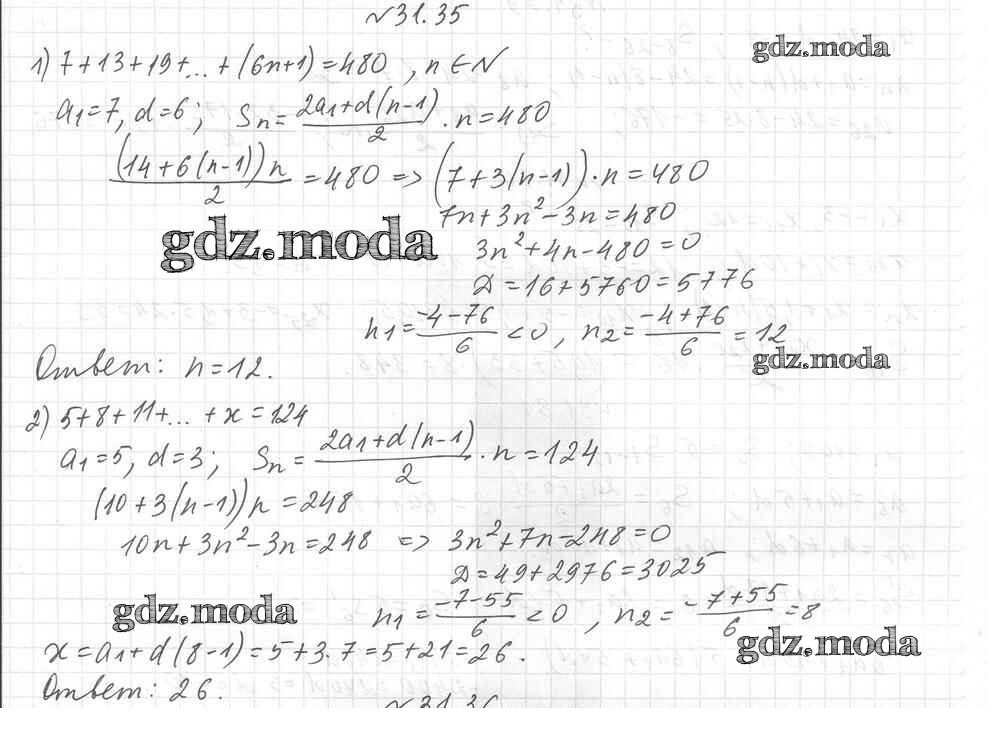 №31.35
gdz.moda
1) 7+13+19+...+(6n+1)=480, n∈N
a1=7, d=6; Sn=(2a1+d(n-1))/2·n=480
((14+6(n-1))n)/2=480 => (7+3(n-1))·n=480
7n+3n²-3n=480
gdz.moda
3n²+4n-480=0
Д=16+5760=5776
n1=(-4-76)/6<0, n2=(-4+76)/6=12
gdz.moda
Ответ: n=12.
2) 5+8+11+...+x=124
a1=5, d=3; Sn=(2a1+d(n-1))/2·n=124
(10+3(n-1))n=248
10n+3n²-3n=248 => 3n²+7n-248=0
Д=49+2976=3025
gdz.moda
n1=(-7-55)/6<0, n2=(-7+55)/6=8
gdz.moda
x=a1+d(8-1)=5+3·7=5+21=26.
Ответ: 26.